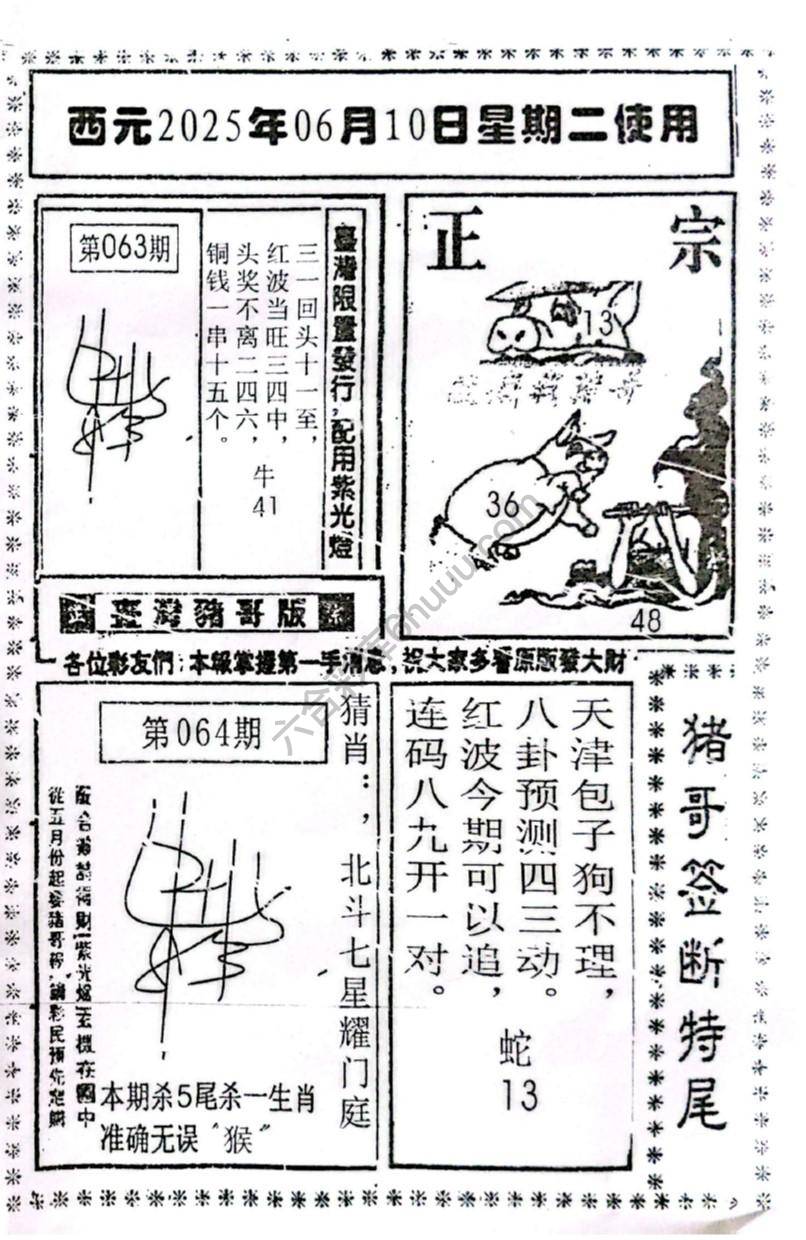 西元2025年06月10日星期二使用
第063期
三一回头十一至，
红波当旺三四中，
头奖不离二四六，
铜钱一串十五个。
牛
41
臺灣限量發行，配用紫光燈
臺灣豬哥版
正宗
13
36
48
各位彩友們：本報掌握第一手消息，祝大家多看原版發大財
第064期
猜肖：，北斗七星耀门庭
從五月份起
本期杀5尾杀一生肖
准确无误“猴”
天津包子狗不理，
八卦预测四三动。
红波今期可以追，
连码八九开一对。
蛇
13
猪哥签断特尾
六合彩库6huuu.com